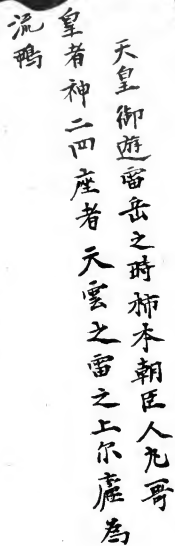 天皇御遊雷岳之時柿本朝臣人丸哥
皇者神二四座者天雲之雷之上尓廬為
流鴨